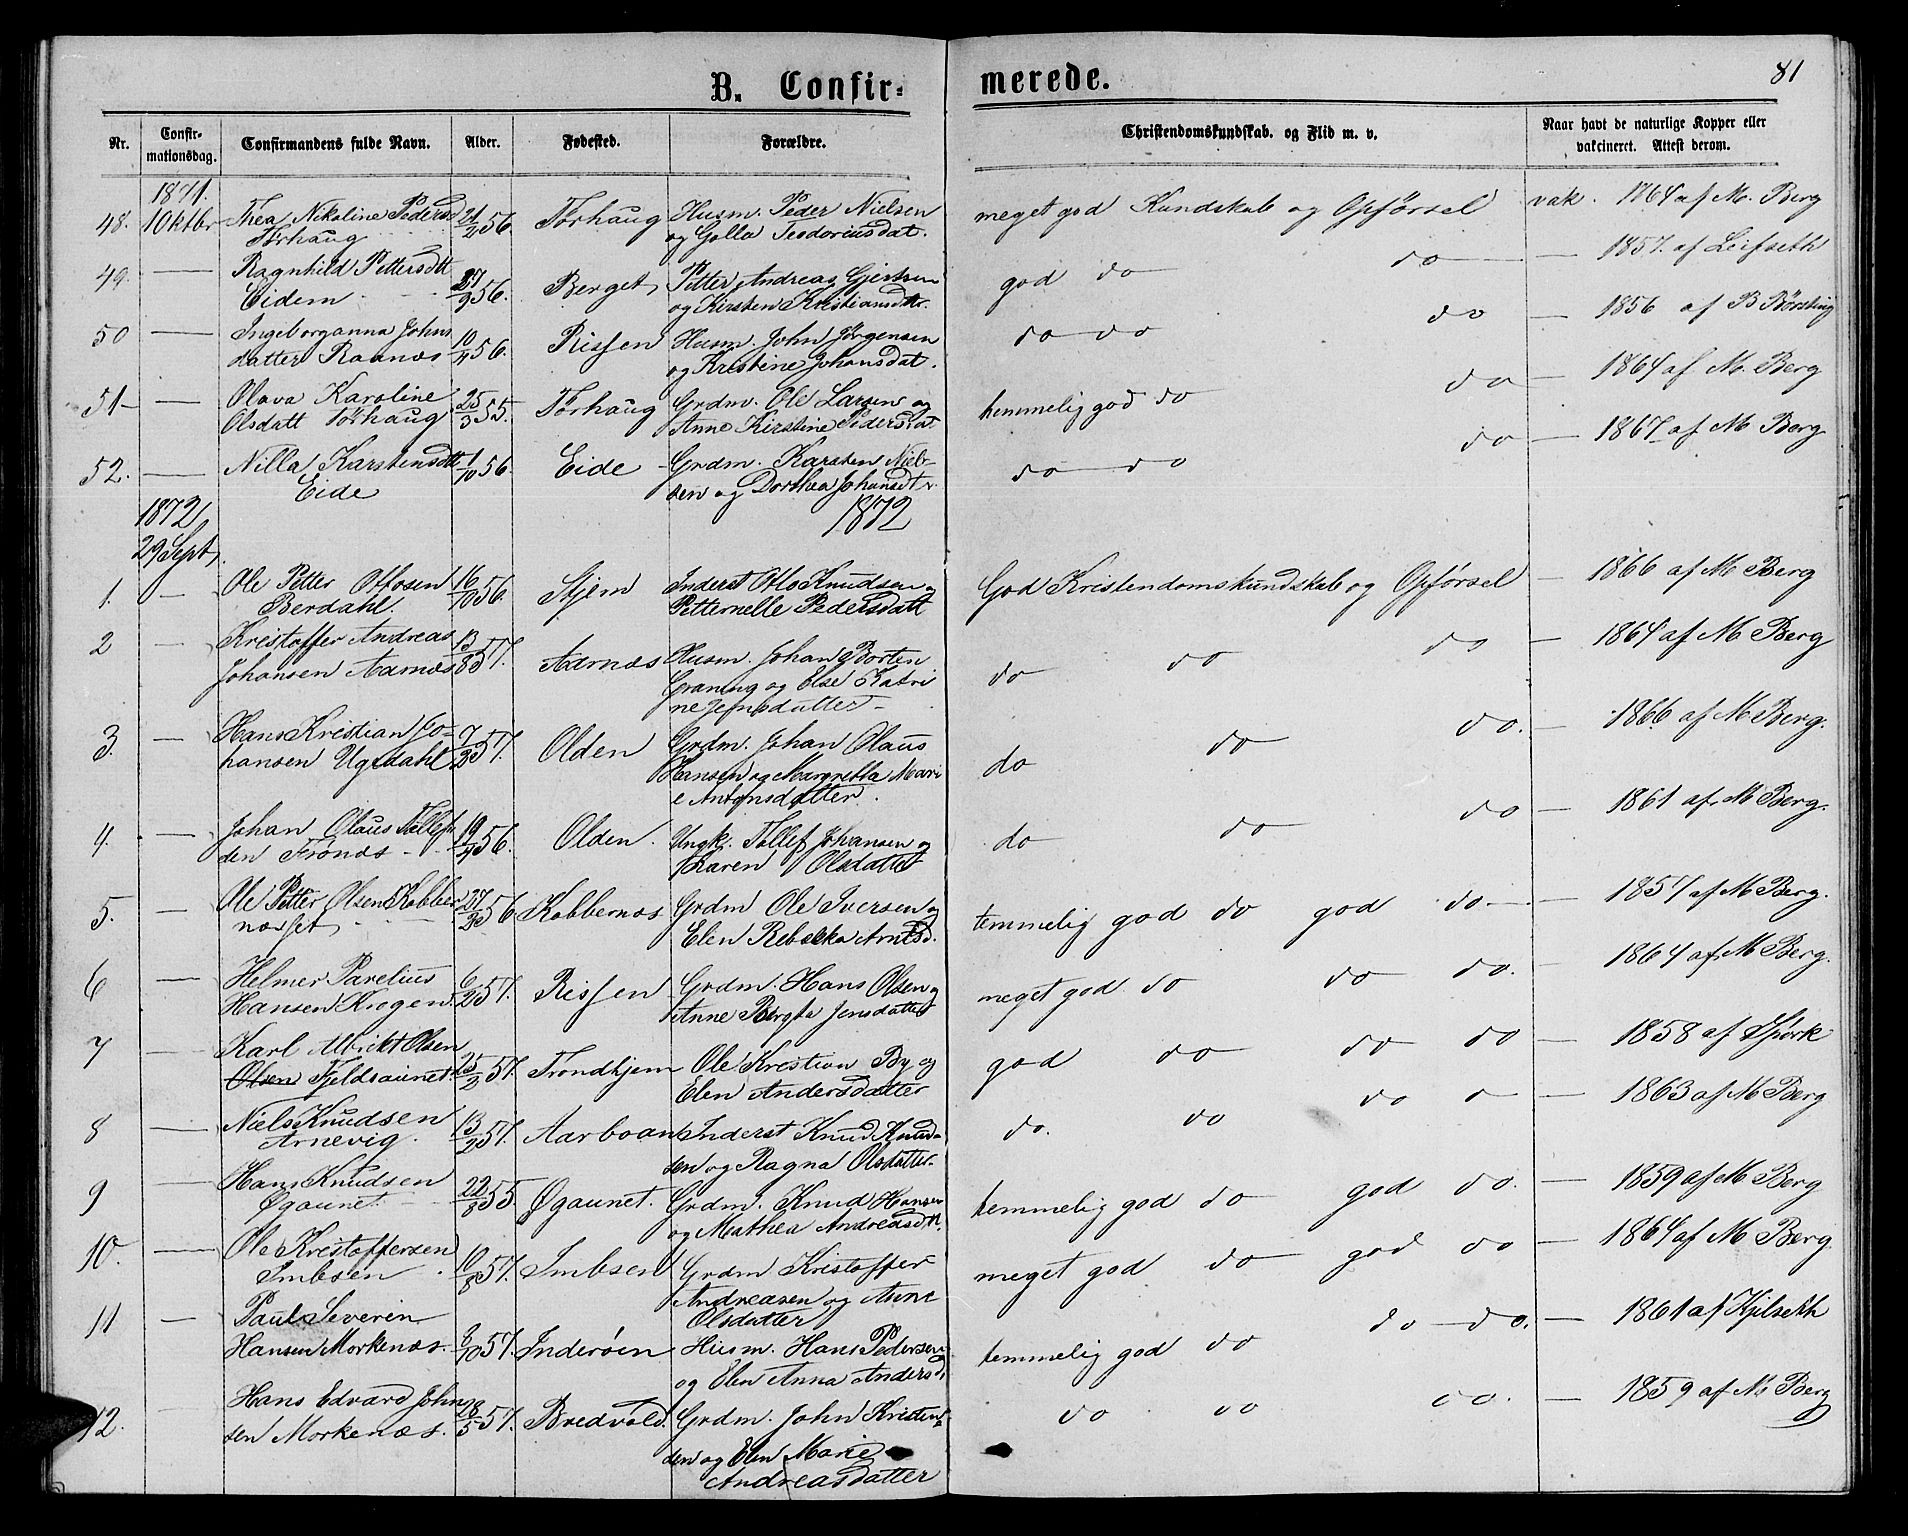 81
B. Confir-
merede.
Nr.
Confir-
mationsdag.
Confirmandens fulde Navn.
Alder.
Fødested.
Forældre.
Christendomskundskab. og Flid m. v.
Naar havt de naturlige Kopper eller
vakcineret. Attest derom.
1871.
48. 10 Oktbr Thea Nikoline Pedersd 21/2 56. Tørhaug Husm. Peder Nielsen meget god Kundskab og Opførsel vak. 1864 af M. Berg
Tørhaug og Golla Teodoriusdat.
49. — Ragnhild Pettersdtt 27/9 56. Berget Petter Andreas Gjertsen god do do — 1857. af Leifseth
Eidem og Kirsten Kristiansdtr.
50 — Ingeborganna Johns 10/4 56. Rissen Husm. John Jørgensen do do do — 1856 af B Børsting
datter Raanæs og Kristine Johansdat.
51 — Olava Karoline 25/3 55. Tørhaug Grdm. Ole Larsen og temmelig god do do — 1864 af M. Berg
Olsdatt Tørhaug Anne Kirstine Pedersdat
52. — Nilla Karstensdtt 1/10 56. Eide Grdm. Karsten Niel- do do do — 1867 af M Berg
Eide sen og Dorthea Johansdtr.
1872 1872
29 Sept.
1. — Ole Petter Ottosen 16/10 56. Stjern Inderst Otto Knudsen og God Kristendomskundskab og Opførsel — 1866 af M Berg
Berdahl. Petternelle Pedersdatt
2 — Kristoffer Andreas 13/8 57. Aarnæs Husm. Johan Borten do do do — 1864 af M Berg
Johansen Aarnæs Graning og Else Katri
ne Jensdatter
3. — Hans Kristian Jo- 7/3 57. Olden Grdm. Johan Olaus do do do. — 1866 af M Berg.
hansen Ugedahl Hansen og Margretha Mari
e Antonsdatter.
4. — Johan Olaus Tollef 19/4 56. Olden. Ungk. Tollef Johansen og do do do — 1861 af M Berg.
sen Frønes Karen Olsdatter
5. — Ole Petter Olsen Kobber 27/2 56 Kobbernæs Grdm Ole Iversen og temmelig god do god do — 1857 af M Berg.
næsset Elen Rebekka Arntsd.
6 — Helmer Parelius 6/2 57. Rissen Grdm. Hans Olsen og meget god do do do. — 1864 af M Berg.
Hansen Krogen. Anne Bergta Jensdatter
7 — Karl Albrikt Olsen 25/2 57. Trondhjem Ole Kristian By og god do do do — 1858 af Spørk
Olsen Fjeldsaunet. Elen Andersdatter
8 — Niels Knudsen 13/2 57. Aarboan Inderst Knud Knud- do. do do — 1863 af M Berg
Arnevig. sen og Ragna Olsdatter.
9 — Hans Knudsen 22/8 55 Øgaunet. Grdm. Knud Hansen temmelig god do god do. — 1859 af M Berg
Øgaunet og Mathea Andreasdtt.
10. — Ole Kristoffersen 10/8 57. Imbsen Grdm Kristoffer meget god do god do — 1864 af M Berg
Imbsen Andreasen og Anne
Olsdatter
11 — Paul Severin
Hansen Morkenæs. 8/10 57. Inderøen Husm. Hans Pedersen temmelig god do do do. — 1861 af Kjilseth
og Elen Anna Andersd.
12. Hans Edvard John 28/5 57. Bredvold. Grdm. John Kristen- do do do. — 1859 af M Berg
sen Morkenæs. sen og Elen Marie
Andreasdatter